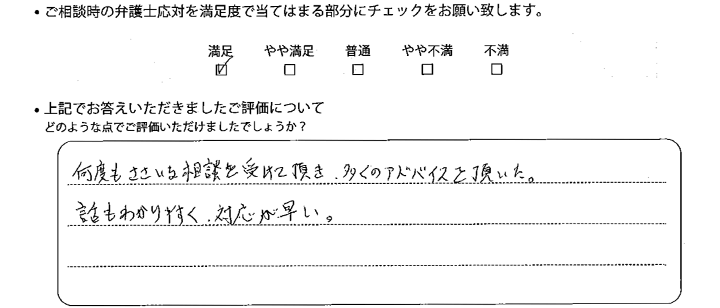 ・ご相談時の弁護士応対を満足度で当てはまる部分にチェックをお願い致します。
満足 やや満足 普通 やや不満 不満
☑ □ □ □ □
・上記でお答えいただきましたご評価について
どのような点でご評価いただけましたでしょうか？
何度もささいな相談を受けて頂き、多くのアドバイスを頂いた。
話もわかりやすく、対応が早い。